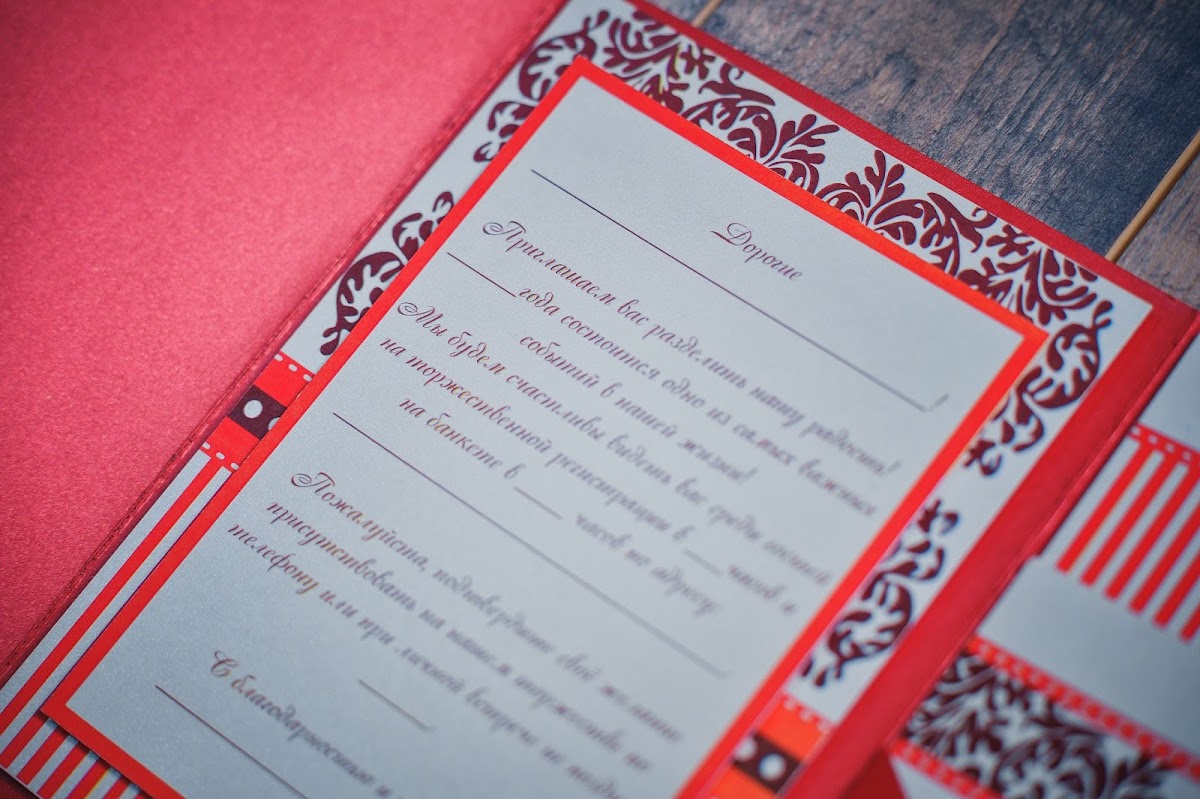 Дорогие
!
Приглашаем вас разделить нашу радость!
года состоится одно из самых важных
событий в нашей жизни!
Мы будем счастливы видеть вас среди гостей
на торжественной регистрации в часов и
на банкете в часов по адресу
Пожалуйста, подтвердите своё желание
присутствовать на нашем торжестве по
телефону или при личной встрече не позднее
С благодарностью и